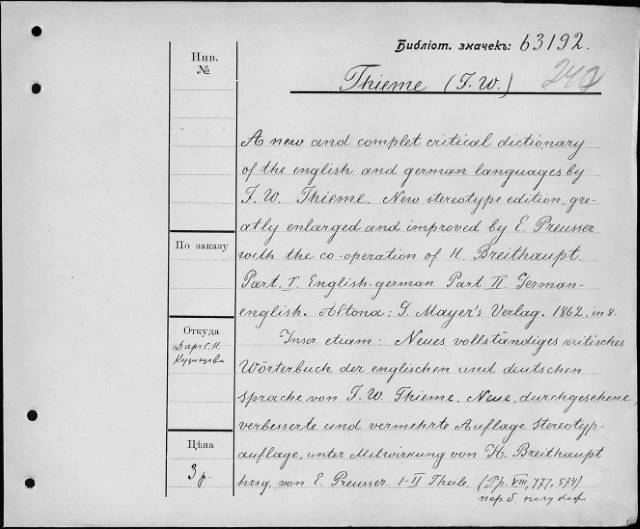 Библіот. значекъ: 63192.
Инв.
№
Thieme (F. W.)
A new and complet critical dictionary
of the english and german languages by
F. W. Thieme. New stereotype edition, gre-
atly enlarged and improved by E. Preusser
with the co-operation of H. Breithaupt.
Part. I. English-german Part II German-
english. Altona: G. Mayer's Verlag. 1862. in 8.
Inscr etiam: Neues vollständiges kritisches
Wörterbuch der englischen und deutschen
Sprache von F. W. Thieme. Neue, durchgesehene,
verbesserte und vermehrte Auflage Stereotyp-
auflage, unter Mitwirkung von H. Breithaupt
hrsg. von E. Preusser. I-II Theile. (Пр. VIII, 777, 574)
пер б.
По заказу
Откуда
Даръ
Кузнецова
Цѣна
3 р.